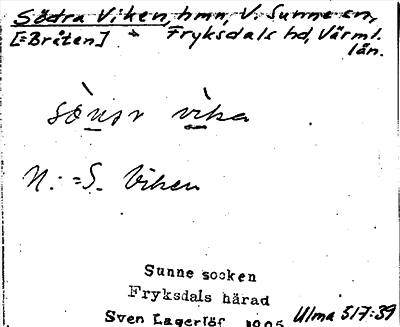 Södra Viken, hmn, V. Sunne sn,
[=Bråten] Fryksdals hd, Värml.
län.
vika
N: =S. Viken
Sunne socken
Fryksdals härad
Sven Lagerlöf 1905
Ulma 317:39